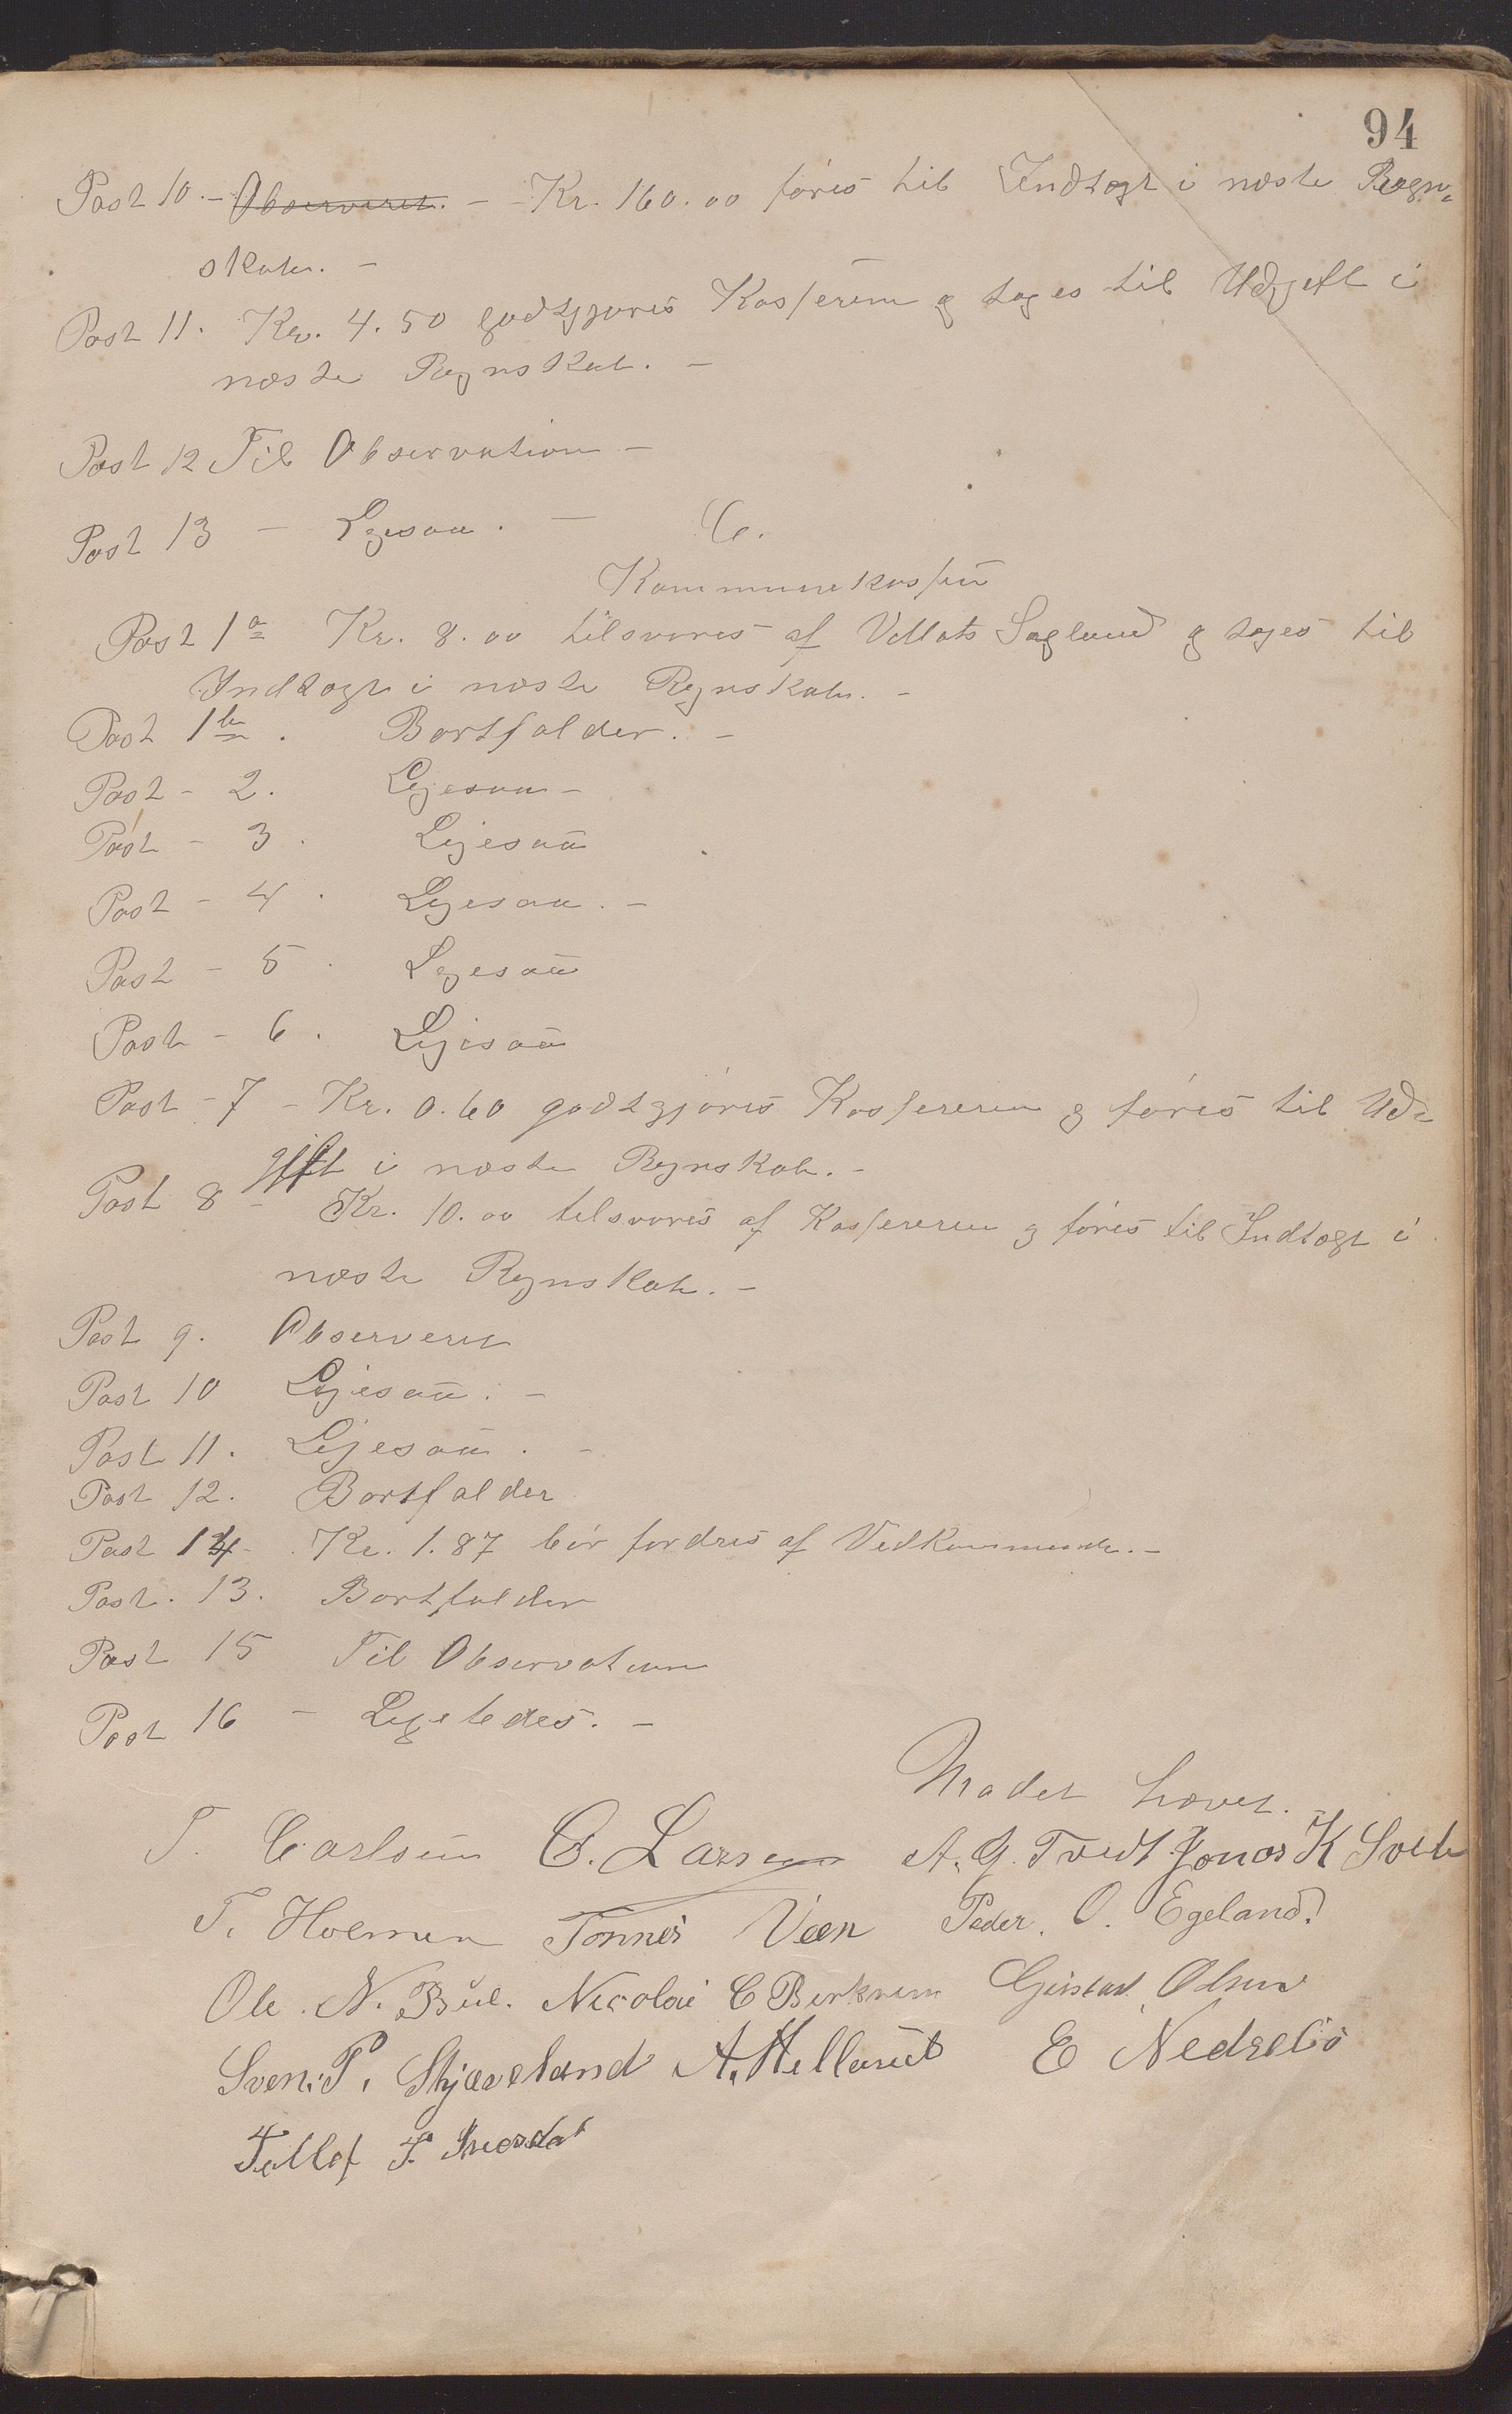 94
Post 10. - Observeret. - Kr. 160.00 føres til Indtægt i næste Regn-
skab. -
Post 11. Kr. 4.50 godtgjøres Kassereren og tages til Udgift i
næste Regnskab. -
Post 12 Til Observation -
Post 13 - Ligesaa. -
C.
Kommunekassen
Post 1a Kr. 8.00 tilsvares af Sagland og tages til
Indtægt i næste Regnskab. -
Post 1b. Bortfalder. -
Post - 2. Ligesaa -
Post - 3. Ligesaa
Post - 4. Ligesaa. -
Post - 5. Ligesaa
Post - 6. Ligesaa
Post - 7 - Kr. 0.60 godtgjøres Kassereren og føres til Ud-
gift i næste Regnskab. -
Post 8 - Kr. 10.00 tilsvares af Kassereren og føres til Indtægt i
næste Regnskab. -
Post 9. Observeret
Post 10 Ligesaa. -
Post 11. Ligesaa. -
Post 12. Bortfalder
Post 14 - Kr. 1.87 bør fordres af Vedkommende. -
Post. 13. Bortfalder
Post 15 Til Observation
Post 16 - Ligeledes. -
Mødet hævet.
T. Carlsen O. Larsen A. G. Tvedt Jonas K
T. Holmen Tønnes Veen Peder. O. Egeland.
Ole. N. Bue. Nicolai C Birkrem Gustav Olsen
Sven. P. Skjæveland A. Helland E Nedrebø
Tollef T.